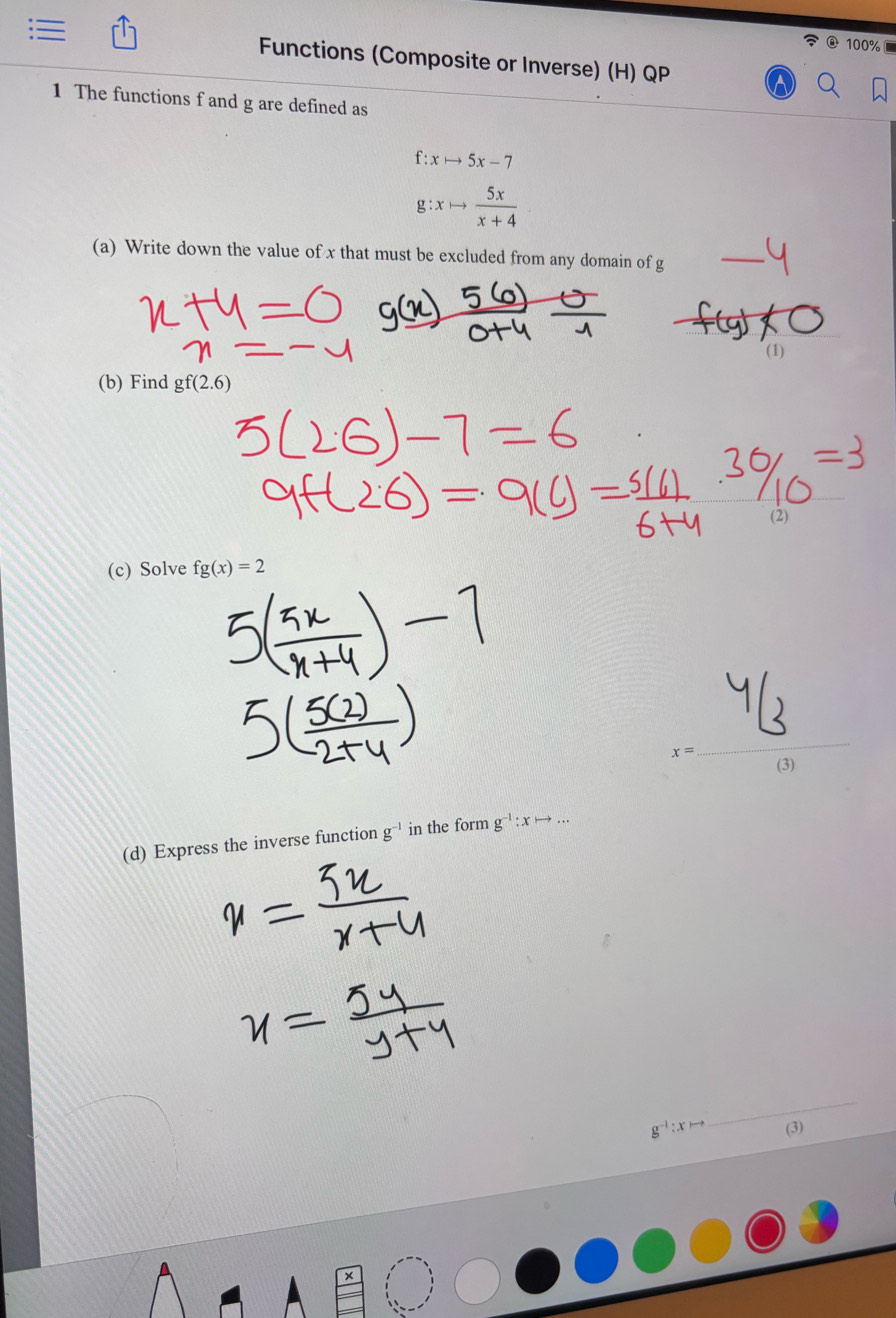 Functions (Composite or Inverse) (H) QP
100%
1 The functions f and g are defined as
f : x ↦ 5x – 7
g : x ↦ 5x / x + 4
(a) Write down the value of x that must be excluded from any domain of g
—4
x+4=0 g(x) 5(0)/0+4 0/4 f(g)≮0
x = –4
(1)
(b) Find gf(2.6)
5(2.6)–7=6
gf(2.6) = g(6) = 5(6)/6+4 30/10 =3
(2)
(c) Solve fg(x) = 2
5(5x/x+4) – 7
5(5(2)/2+4)
4/3
x =
(3)
(d) Express the inverse function g⁻¹ in the form g⁻¹ : x ↦ ...
x = 5x/x+4
x = 5y/y+4
g⁻¹ : x ↦
(3)